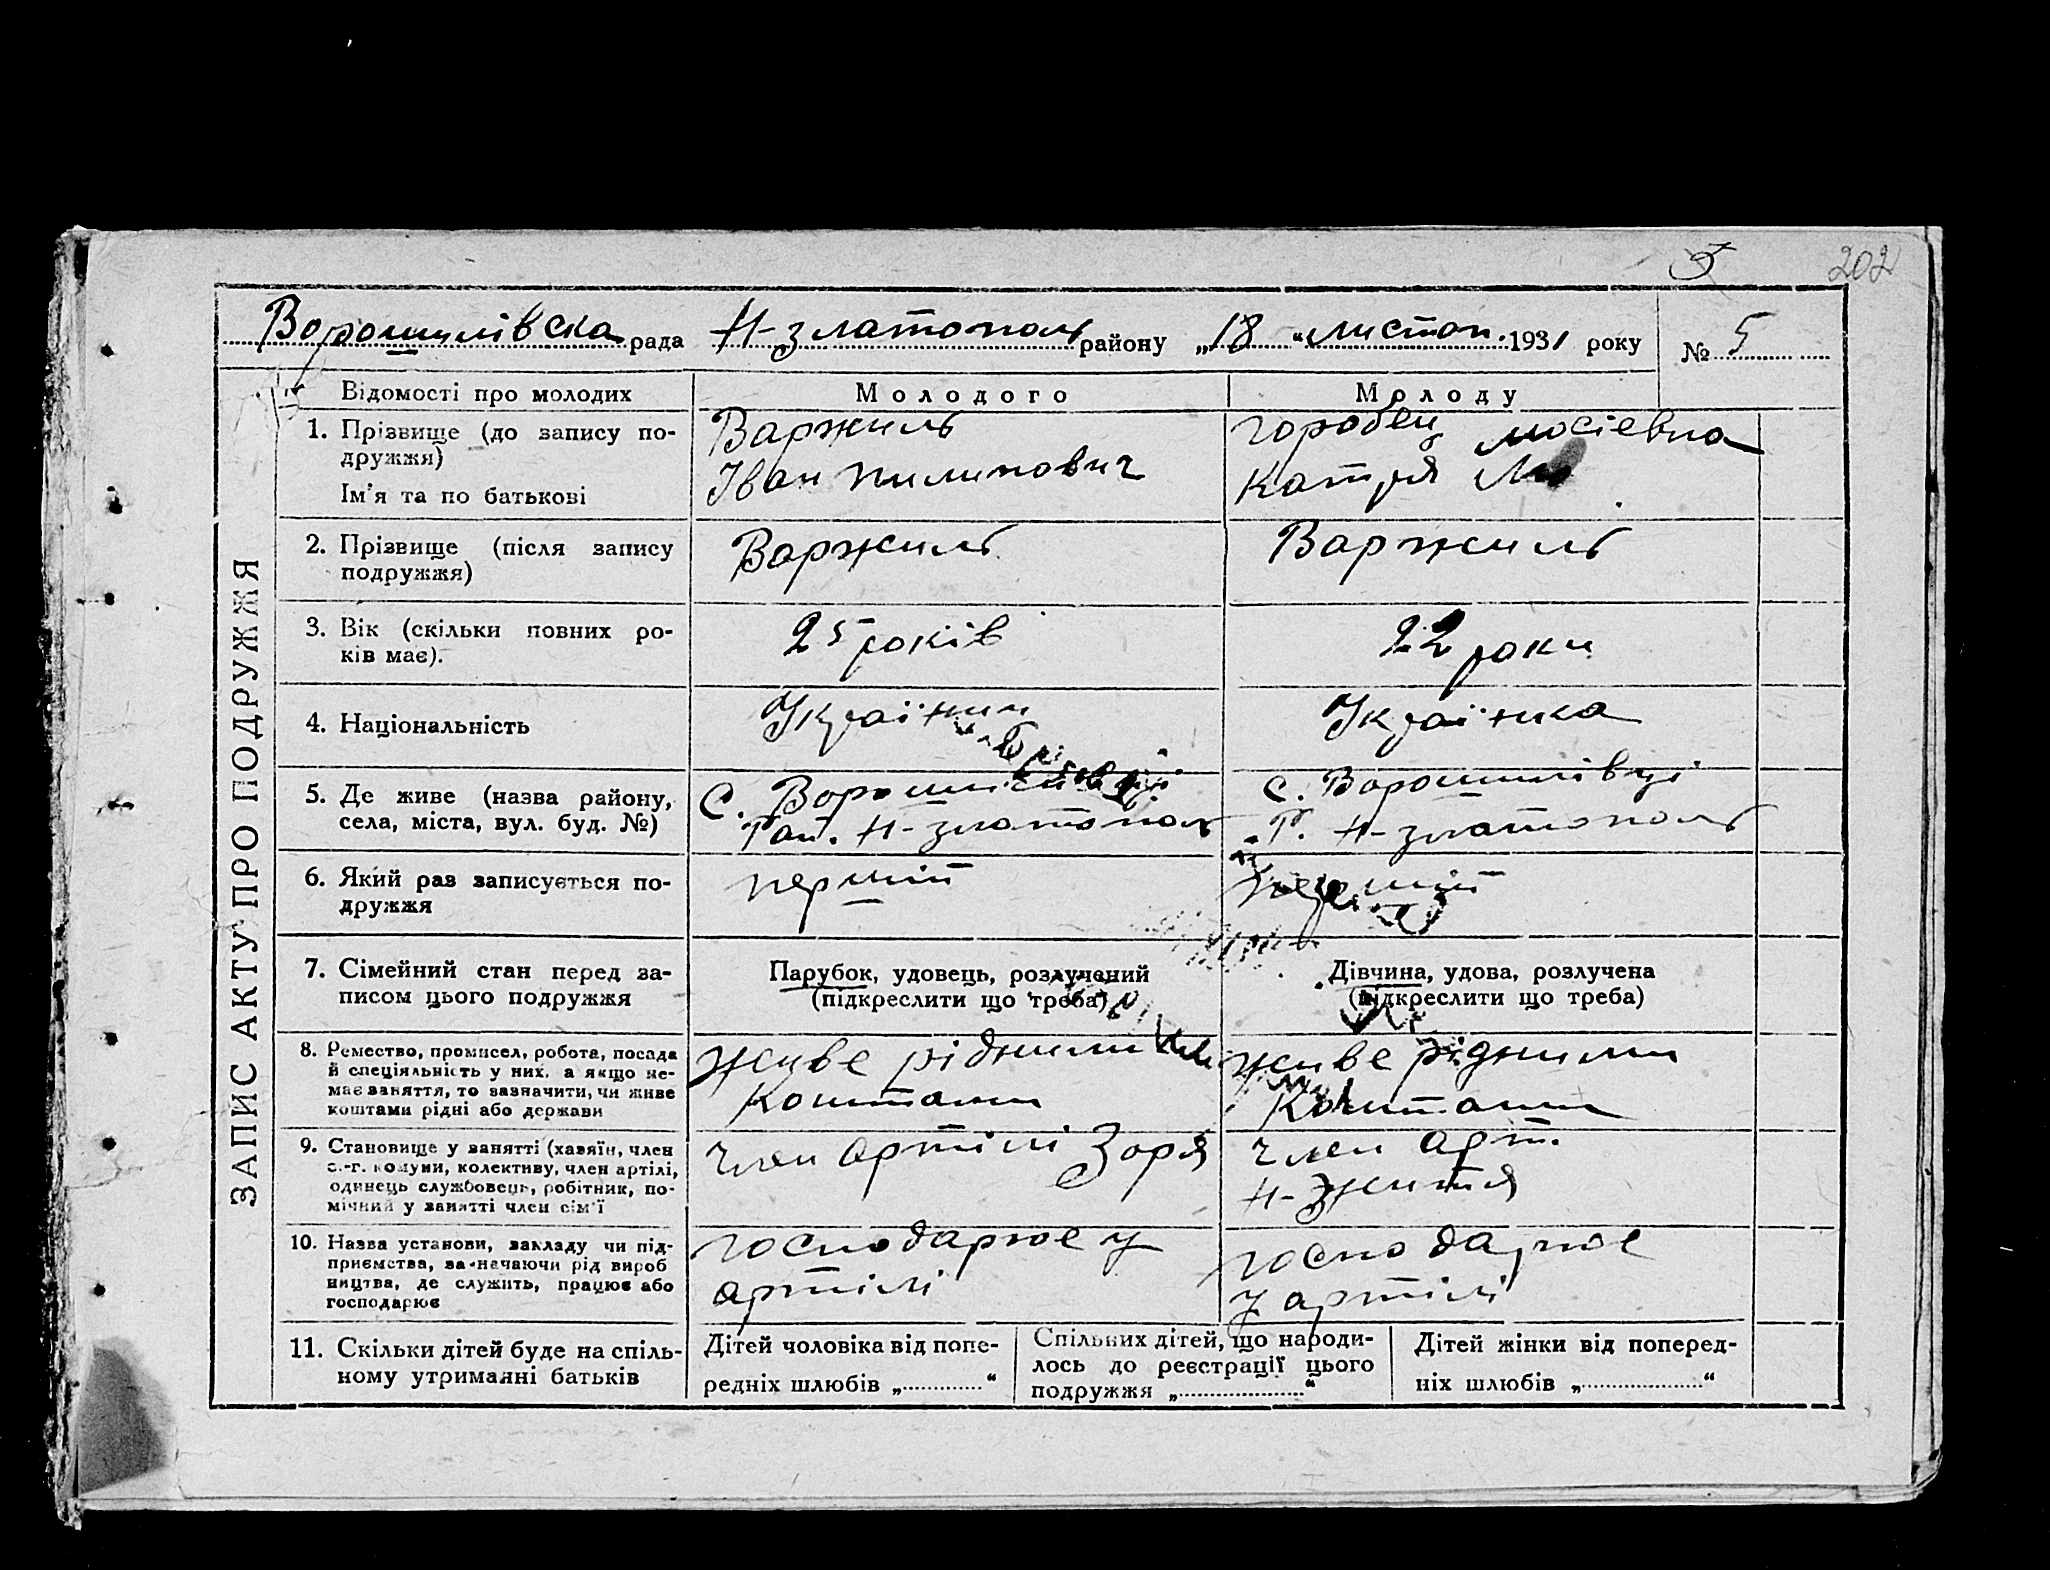 5 202
Ворошилівска рада Н-златополь району „18“ листоп. 1931 року № 5
ЗАПИС АКТУ ПРО ПОДРУЖЖЯ
Відомості про молодих Молодого Молоду
1. Прізвище (до запису по-
дружжя)
Ім'я та по батькові
Варжиль
Іван Пилипович
Горобец Мосіевна
Катря
2. Прізвище (після запису
подружжя)
Варжиль
Варжиль
3. Вік (скільки повних ро-
ків має).
25 років
22 роки
4. Національність
Українин
Українка
5. Де живе (назва району,
села, міста, вул. буд. №)
С. Ворошилівці
Рай. Н-златополь
С. Ворошилівці
Р. Н-златополь
6. Який раз записується по-
дружжя
перший
перший
7. Сімейний стан перед за-
писом цього подружжя
Парубок, удовець, розлучений
(підкреслити що треба)
Дівчина, удова, розлучена
(підкреслити що треба)
8. Ремество, промисел, робота, посада
й спеціяльність у них, а якщо не-
має заняття, то зазначити, чи живе
коштами рідні або держави
живе рідними
коштами
живе рідними
коштами
9. Становище у занятті (хазяїн, член
с.-г. комуни, колективу, член артілі,
одинець службовець, робітник, по-
мічний у занятті член сім'ї
член артілі Зоря
член арт.
Н-Життя
10. Назва установи, закладу чи під-
приємства, зазначаючи рід вироб
ництва, де служить, працює або
господарює
господарює у
артілі
господарює
у артілі
11. Скільки дітей буде на спіль-
ному утриманні батьків
Дітей чоловіка від попе-
редніх шлюбів „ “
Спільних дітей, що народи-
лось до реєстрації цього
подружжя „ “
Дітей жінки від поперед-
ніх шлюбів „ “